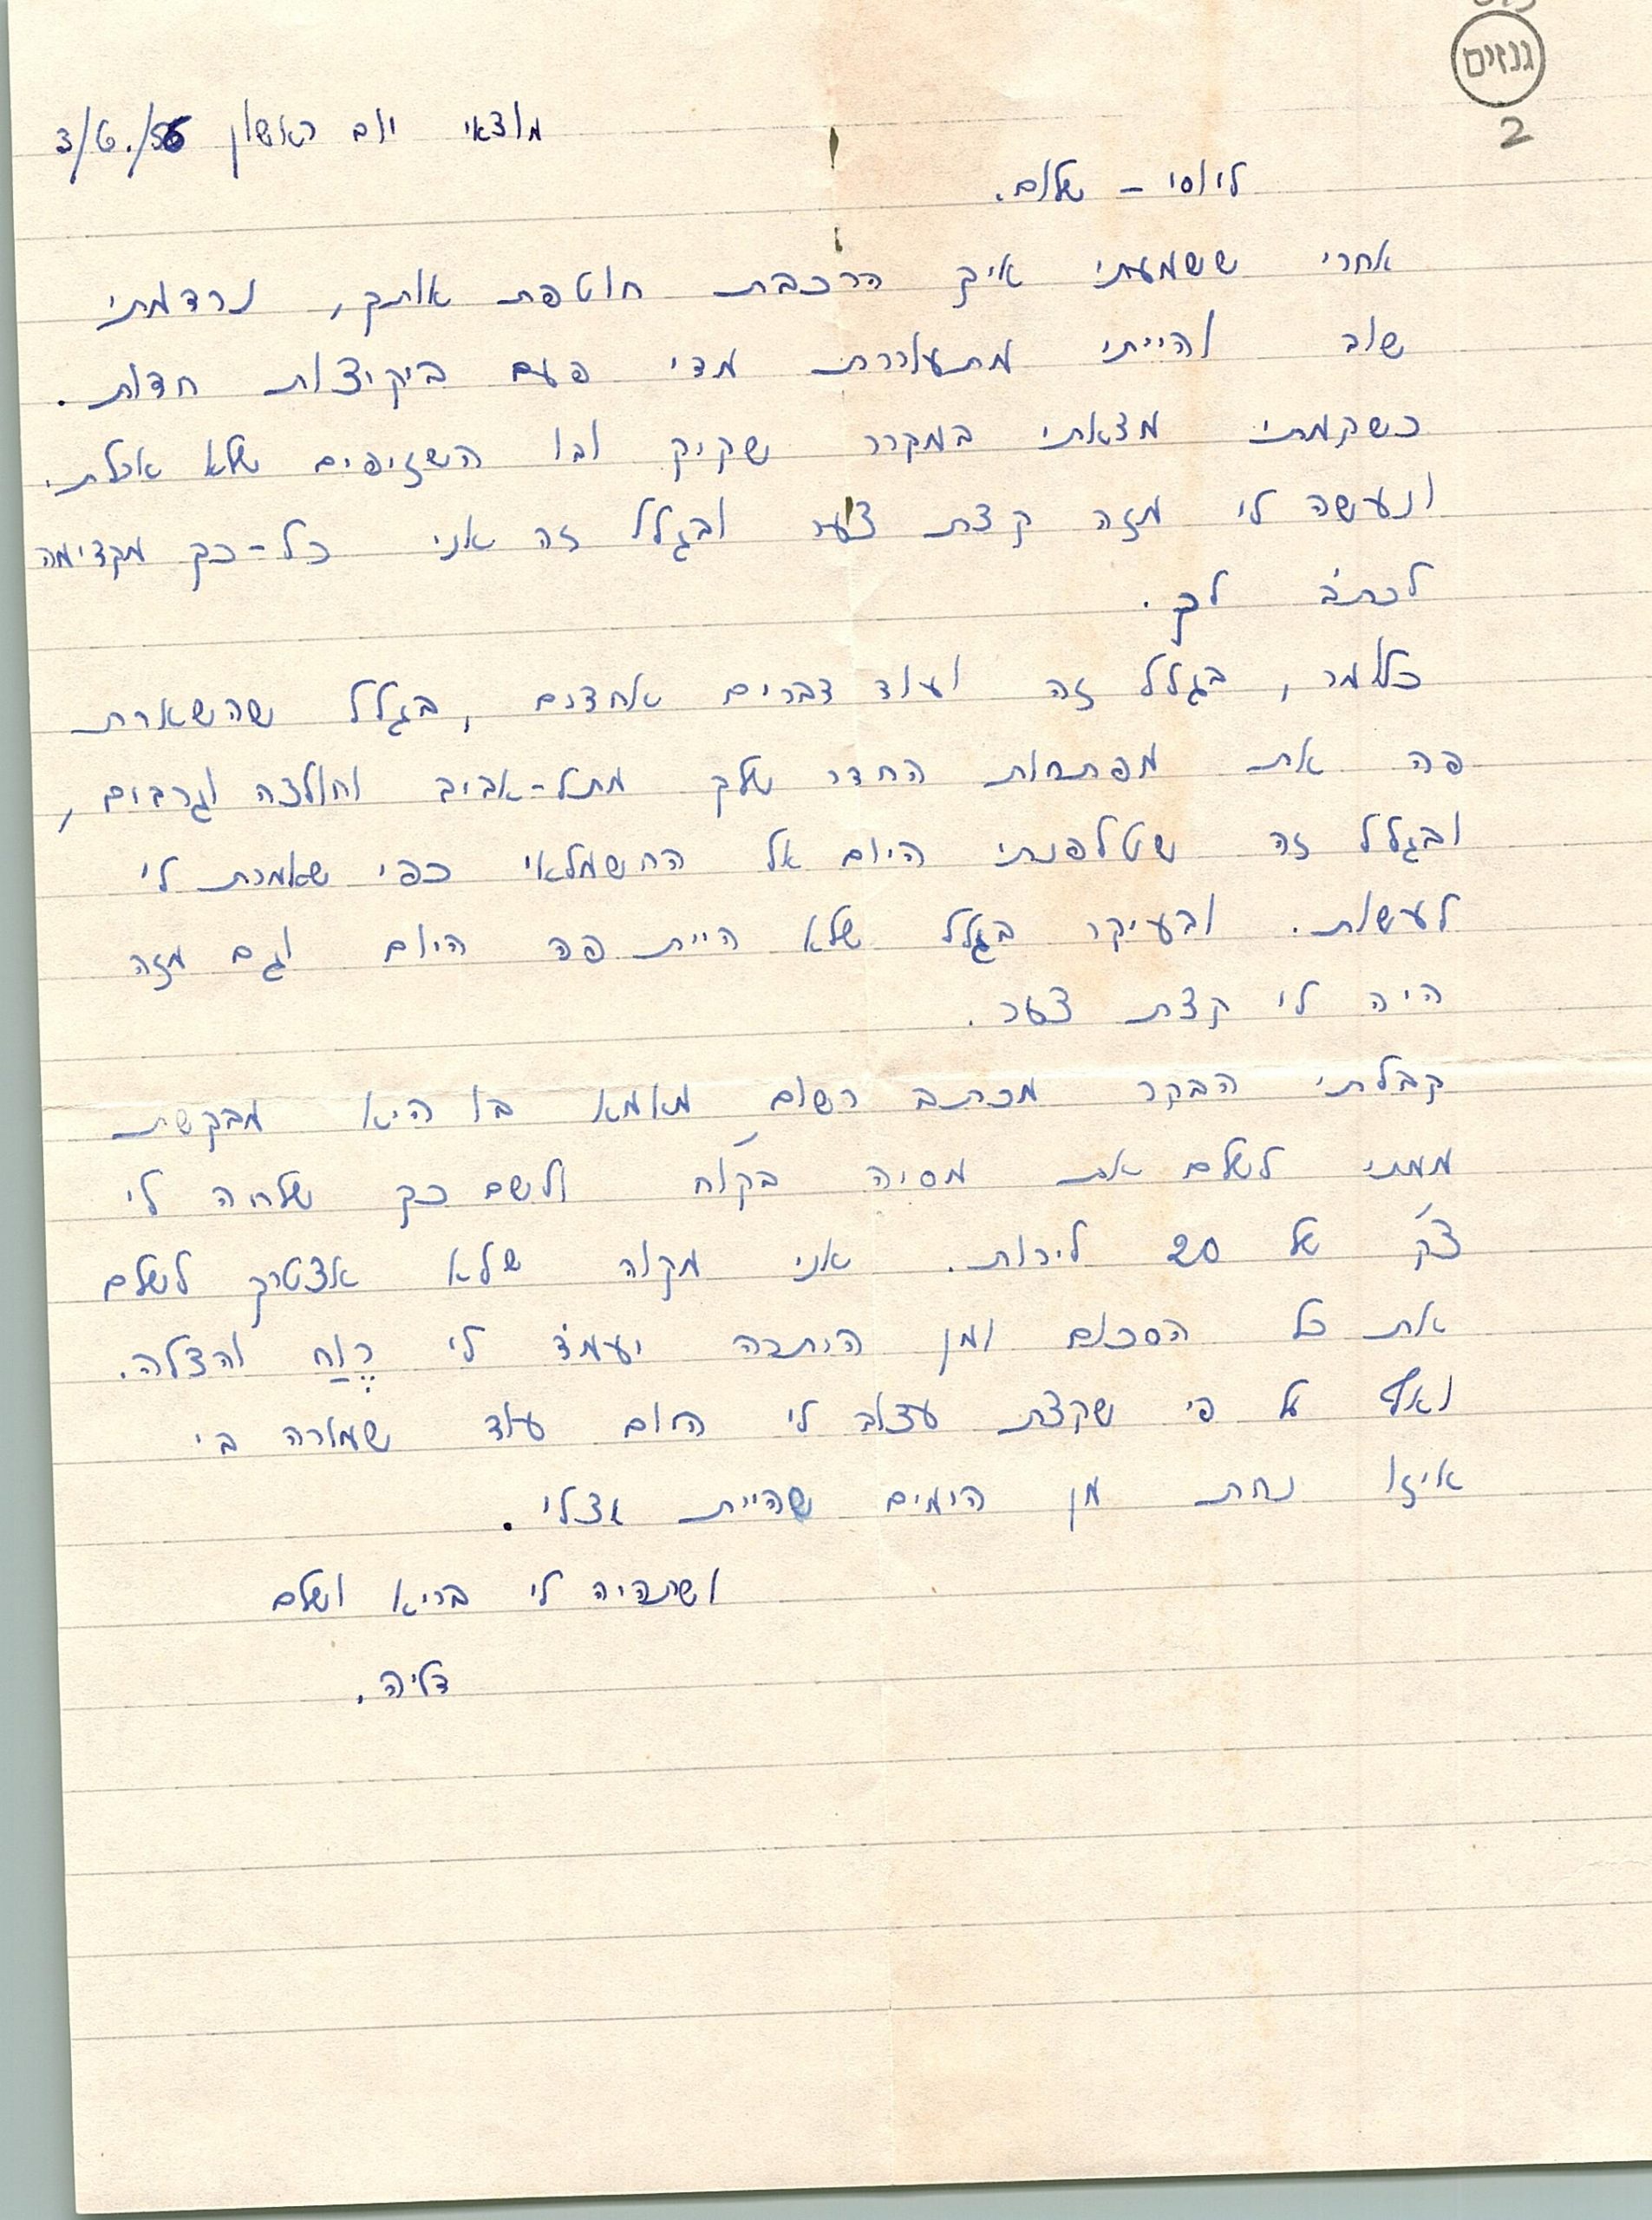 גנזים
2
מוצאי יום ראשון 3/6./56
ליוסי - שלום.
אחרי ששמעתי איך הרכבת חוטפת אותך, נרדמתי
שוב והייתי מתעוררת מדי פעם ביקיצות חדות.
כשקמתי מצאתי במקרר שקיק ובו השזיפים שלא אכלת.
ונעשה לי מזה קצת צער ובגלל זה אני כל-כך מקדימה
לכתֹב לך.
כלומר, בגלל זה ועוד דברים אחדים, בגלל שהשארת
פה את מפתחות החדר שלך מתל-אביב וחולצה וגרבים,
ובגלל זה שטלפנתי היום אל החשמלאי כפי שאמרת לי
לעשות. ובעיקר בגלל שלא היית פה היום וגם מזה
היה לי קצת צער.
קבלתי הבקר מכתב רשום מאמא בו היא מבקשת
ממני לשלם את מסיה בקו"ח ולשם כך שלחה לי
צ'ק של 20 לירות. אני מקוה שלא אצטרך לשלם
את כל הסכום ומן היתרה יעמֹד לי רֶוַח והצלה.
ואף על פי שקצת עצוב לי היום עוד שמורה בי
איזו נחת מן הימים שהיית אצלי.
ושתהיה לי בריא ושלם
דליה.